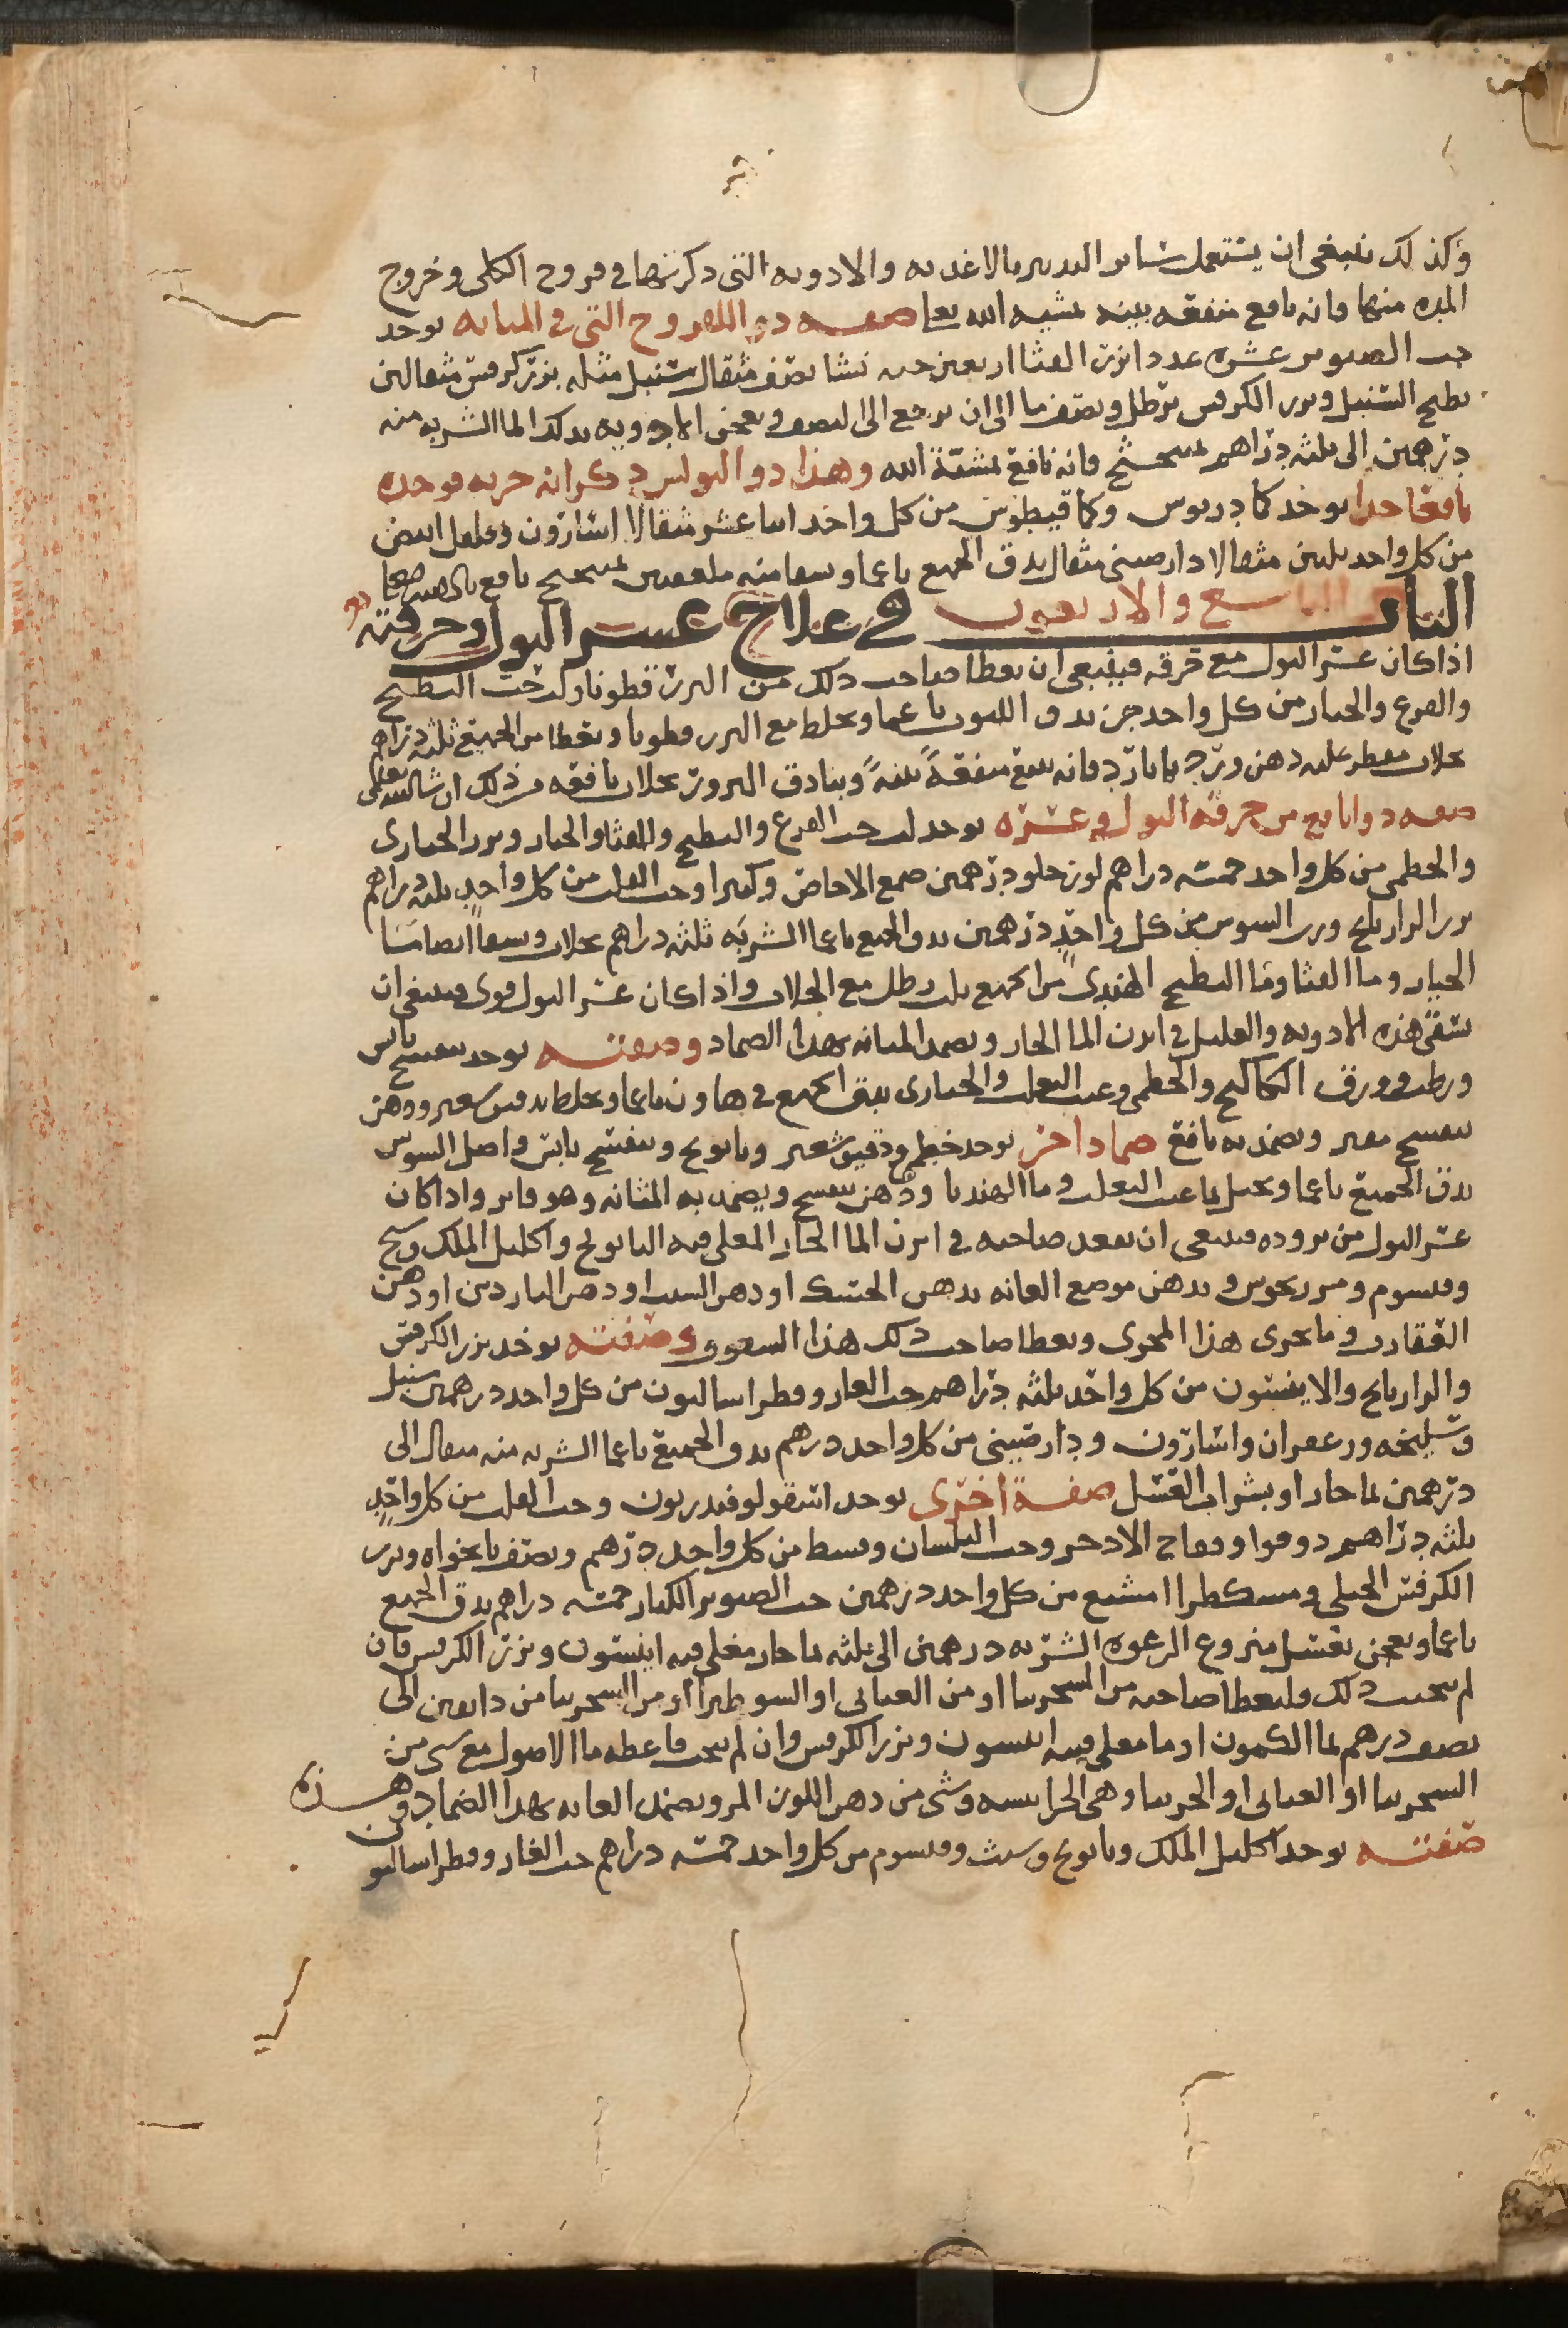 وكذلك ينبغى ان يستعمل سائر التدبير بالاغديه والادويه التى ذكرتها فى قروح الكلى وخروج
المده منها فانه نافع منفعه بينه بمشيه الله تعا صفه دوا للقروح التى فى المثانه يوخد
حب الصنوبر عشره عددا بزر القثا اربعين حبه نشا نصف مثقال سنبل مثله بزر كرفس مثقالين
يطبخ السنبل وبزر الكرفس برطل ونصف ما الى ان يرجع الى النصف ويعجن الادويه بدلك الما الشربه منه
درهمين الى ثلثه دراهم بميبختج فانه نافع بمشية الله وهذا دوا لبولس ذكر انه جربه فوجده
نافعا جدا يوخد كمادريوس وكمافيطوس من كل واحد اثنا عشر مثقالا اسارون وفلفل ابيض
من كل واحد ثلثين مثقالا دارصينى مثقال يدق الجميع ناعما ويسقا منه ملعقتين بميبختج نافع
الباب التاسع والاربعون فى علاج عسر البول وحرقته
اذا كان عسر البول مع حرقه فينبغى ان يعطا صاحب دلك من البزرقطونا ولب حب البطيخ
والقرع والخيار من كل واحد جزء يدق اللبوب ناعما ويخلط مع البزرقطونا ويعطا من الجميع ثلثه دراهم
بجلاب مقطر عليه دهن ورد بما بارد فانه ينفع منفعةً بينةً وبنادق البزور بجلاب نافعه من ذلك ان شا الله تعالى
صفه دوا نافع من حرقه البول وعسره يوخد لب حب القرع والبطيخ والقثا والخيار وبزر الخبازى
والخطمى من كل واحد خمسه دراهم لوز حلو درهمين صمغ الاجاص وكثيرا وحب القلت من كل واحد ثلثه دراهم
بزر الرازيانج ورب السوس من كل واحد درهمين يدق الجميع ناعما الشربه ثلثه دراهم بجلاب ويسقا ايضا من ما
الخيار وما القثا وما البطيخ الهندى من الجميع ثلث رطل مع الجلاب واذا كان عسر البول قوى فينبغى ان
يسقى هذه الادويه والعليل فى ابزن الما الحار ويضمد المثانه بهدا الضماد وصفته يوخد بنفسج يابس
ورطب وورق الكاكنج والخطمى وعنب الثعلب والخبازى يدق الجميع فى هاون ناعما ويخلط بدقيق شعير ودهن
بنفسج مفتر ويضمد به نافع ضماد اخر يوخد خطمى ودقيق شعير وبابونج وبنفسج يابس واصل السوس
يدق الجميع ناعما ويجبل بما عنب الثعلب وما الهندبا ودهن بنفسج ويضمد به المثانه وهو فاتر واذا كان
عسر البول من بروده فينبغى ان يقعد صاحبه فى ابزن الما الحار المغلى فيه البابونج واكليل الملك وشيح
وقيسوم ومرزنجوس ويدهن موضع العانه بدهن الحسك او دهن الشبت او دهن الناردين او دهن
العقارب وما يجرى هذا المجرى ويعطا صاحب ذلك هذا السفوف وصفته يوخد بزر الكرفس
والرازيانج والانيسون من كل واحد ثلثه دراهم حب الغار وفطراساليون من كل واحد درهمين سنبل
وسليخه وزعفران واسارون ودارصينى من كل واحد درهم يدق الجميع ناعما الشربه منه مثقال الى
درهمين بما حار او بشراب العسل صفة اخرى يوخد اسقولوقندريون وحب القلت من كل واحد
ثلثه دراهم دوقوا وفقاح الادخر وحب البلسان وقسط من كل واحد درهم ونصف نانخواه وبزر
الكرفس الجبلى ومسكطرامشيع من كل واحد درهمين حب الصنوبر الكبار خمسه دراهم يدق الجميع
ناعما ويعجن بعسل منزوع الرغوه الشربه درهمين الى ثلثه بما حار مغلى فيه انيسون وبزر الكرفس فان
لم يجب دلك وليعطا صاحبه من السجزنيا او من القباذى او السوطيرا او من السجزنيا من دانقين الى
نصف درهم بما الكمون او ما مغلى فيه انيسون وبزر الكرفس وان لم يجب فاعطه ما الاصول مع شى من
السجزنيا او القباذى او وشى من دهن اللوز المر ويضمد العانه بهدا الضماد وهذه
صفته يوخد اكليل الملك وبابونج وشبث وقيسوم من كل واحد خمسه دراهم حب الغار وفطراساليون